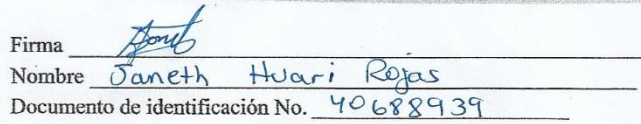 Firma
Nombre Janeth Huari Rojas
Documento de identificación No. 40688939